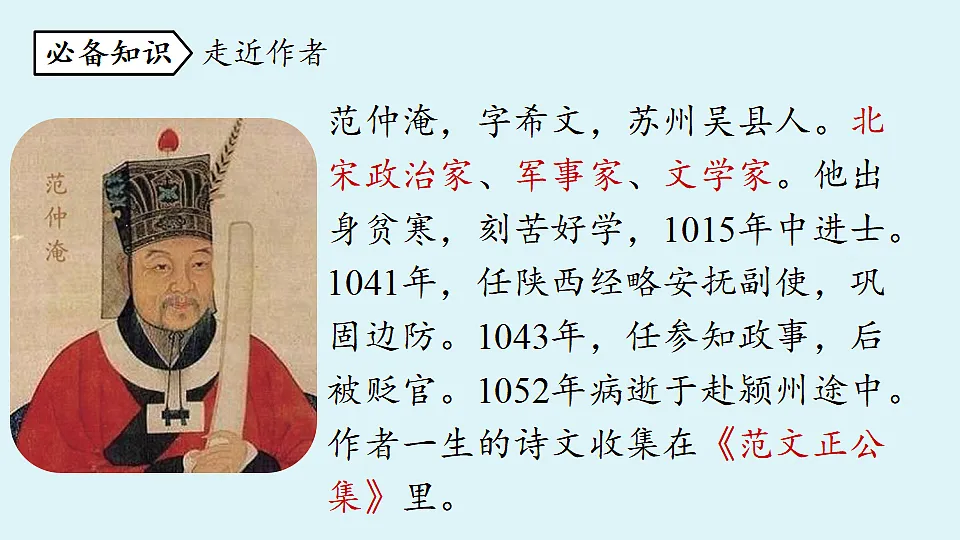 必备知识 走近作者
范仲淹
范仲淹，字希文，苏州吴县人。北
宋政治家、军事家、文学家。他出
身贫寒，刻苦好学，1015年中进士。
1041年，任陕西经略安抚副使，巩
固边防。1043年，任参知政事，后
被贬官。1052年病逝于赴颍州途中。
作者一生的诗文收集在《范文正公
集》里。